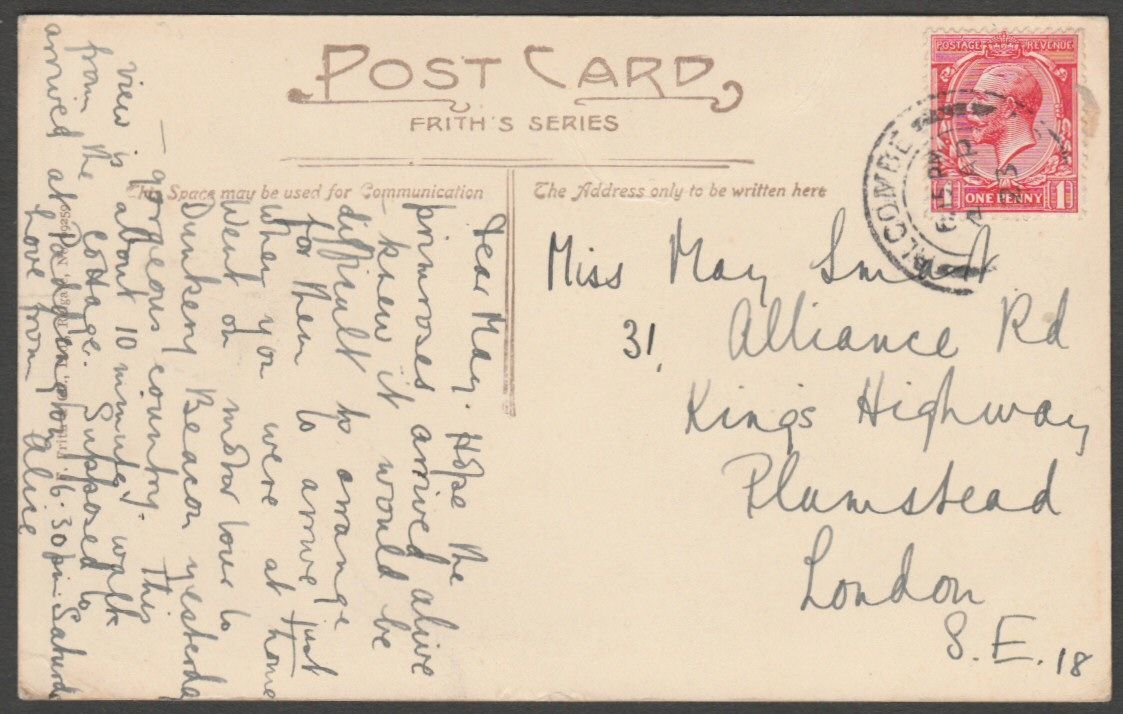 POST CARD
FRITH'S SERIES
This Space may be used for Communication
The Address only to be written here
POSTAGE REVENUE
ONE PENNY
1 1D
ALCOMBE
AP
23
Miss May Smart
31, Alliance Rd
Kings Highway
Plumstead
London
S.E. 18
Dear May. Hope the
primroses arrived alive
- knew it would be
difficult to arrange
for them to arrive just
when you were at home
Went on motor tour to
Dunkery Beacon yesterday
- gorgeous country. This
view is about 10 minutes walk
from the cottage. Supposed to
arrived at Paddington 6.30pm Saturday
love from Alice
Reigate